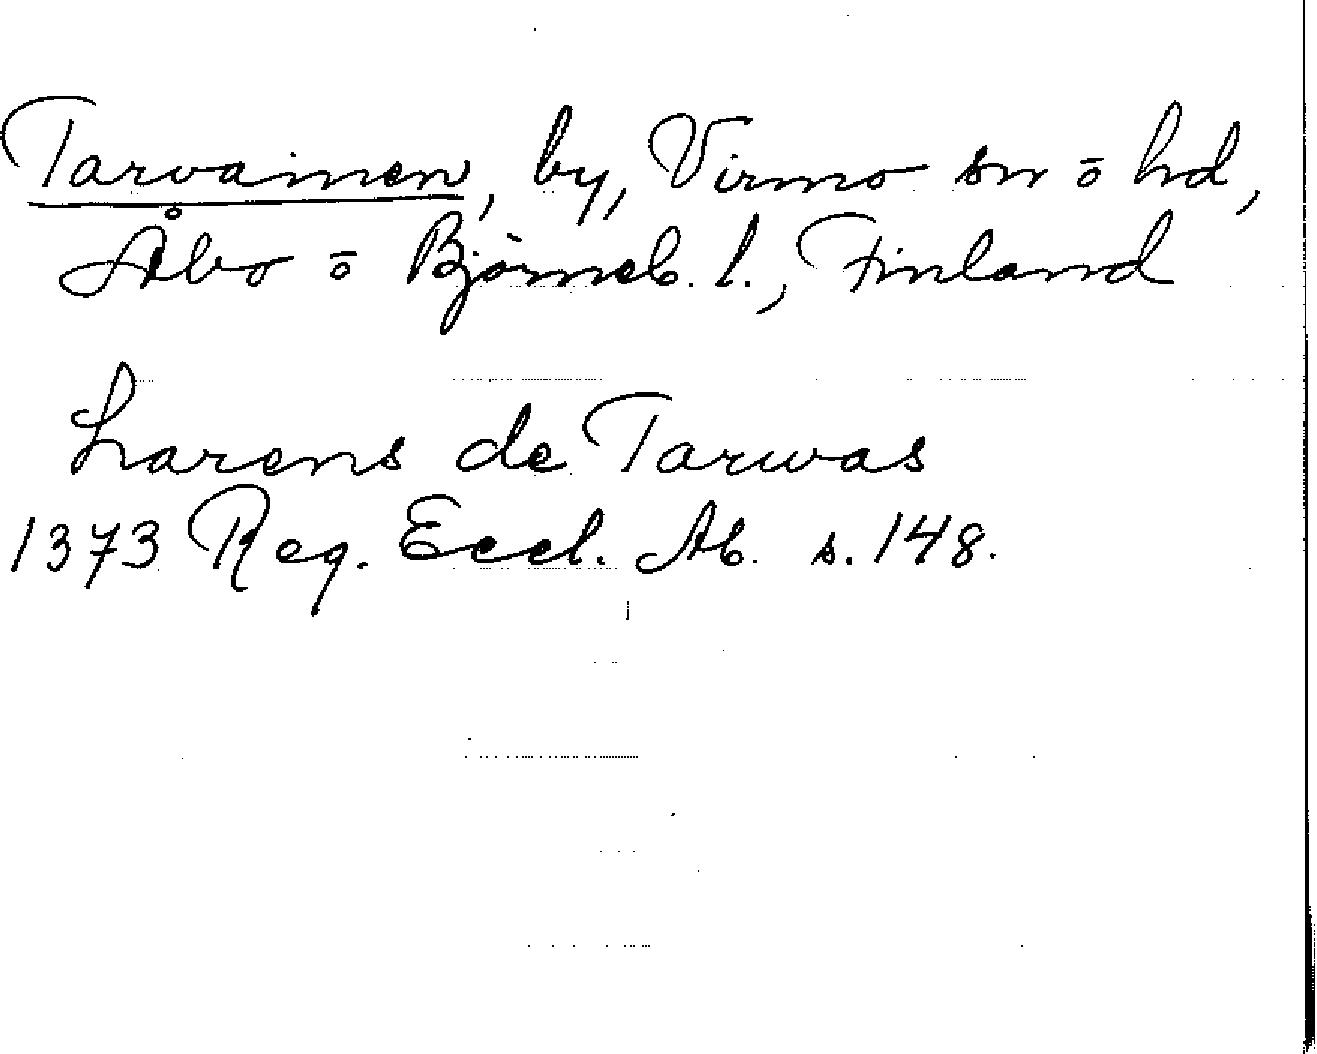 Tarvainen, by, Virmo sn o hd,
Åbo o Björneb. l., Finland
Larens de Tarwas
1373 Reg. Eccl. Ab. s. 148.